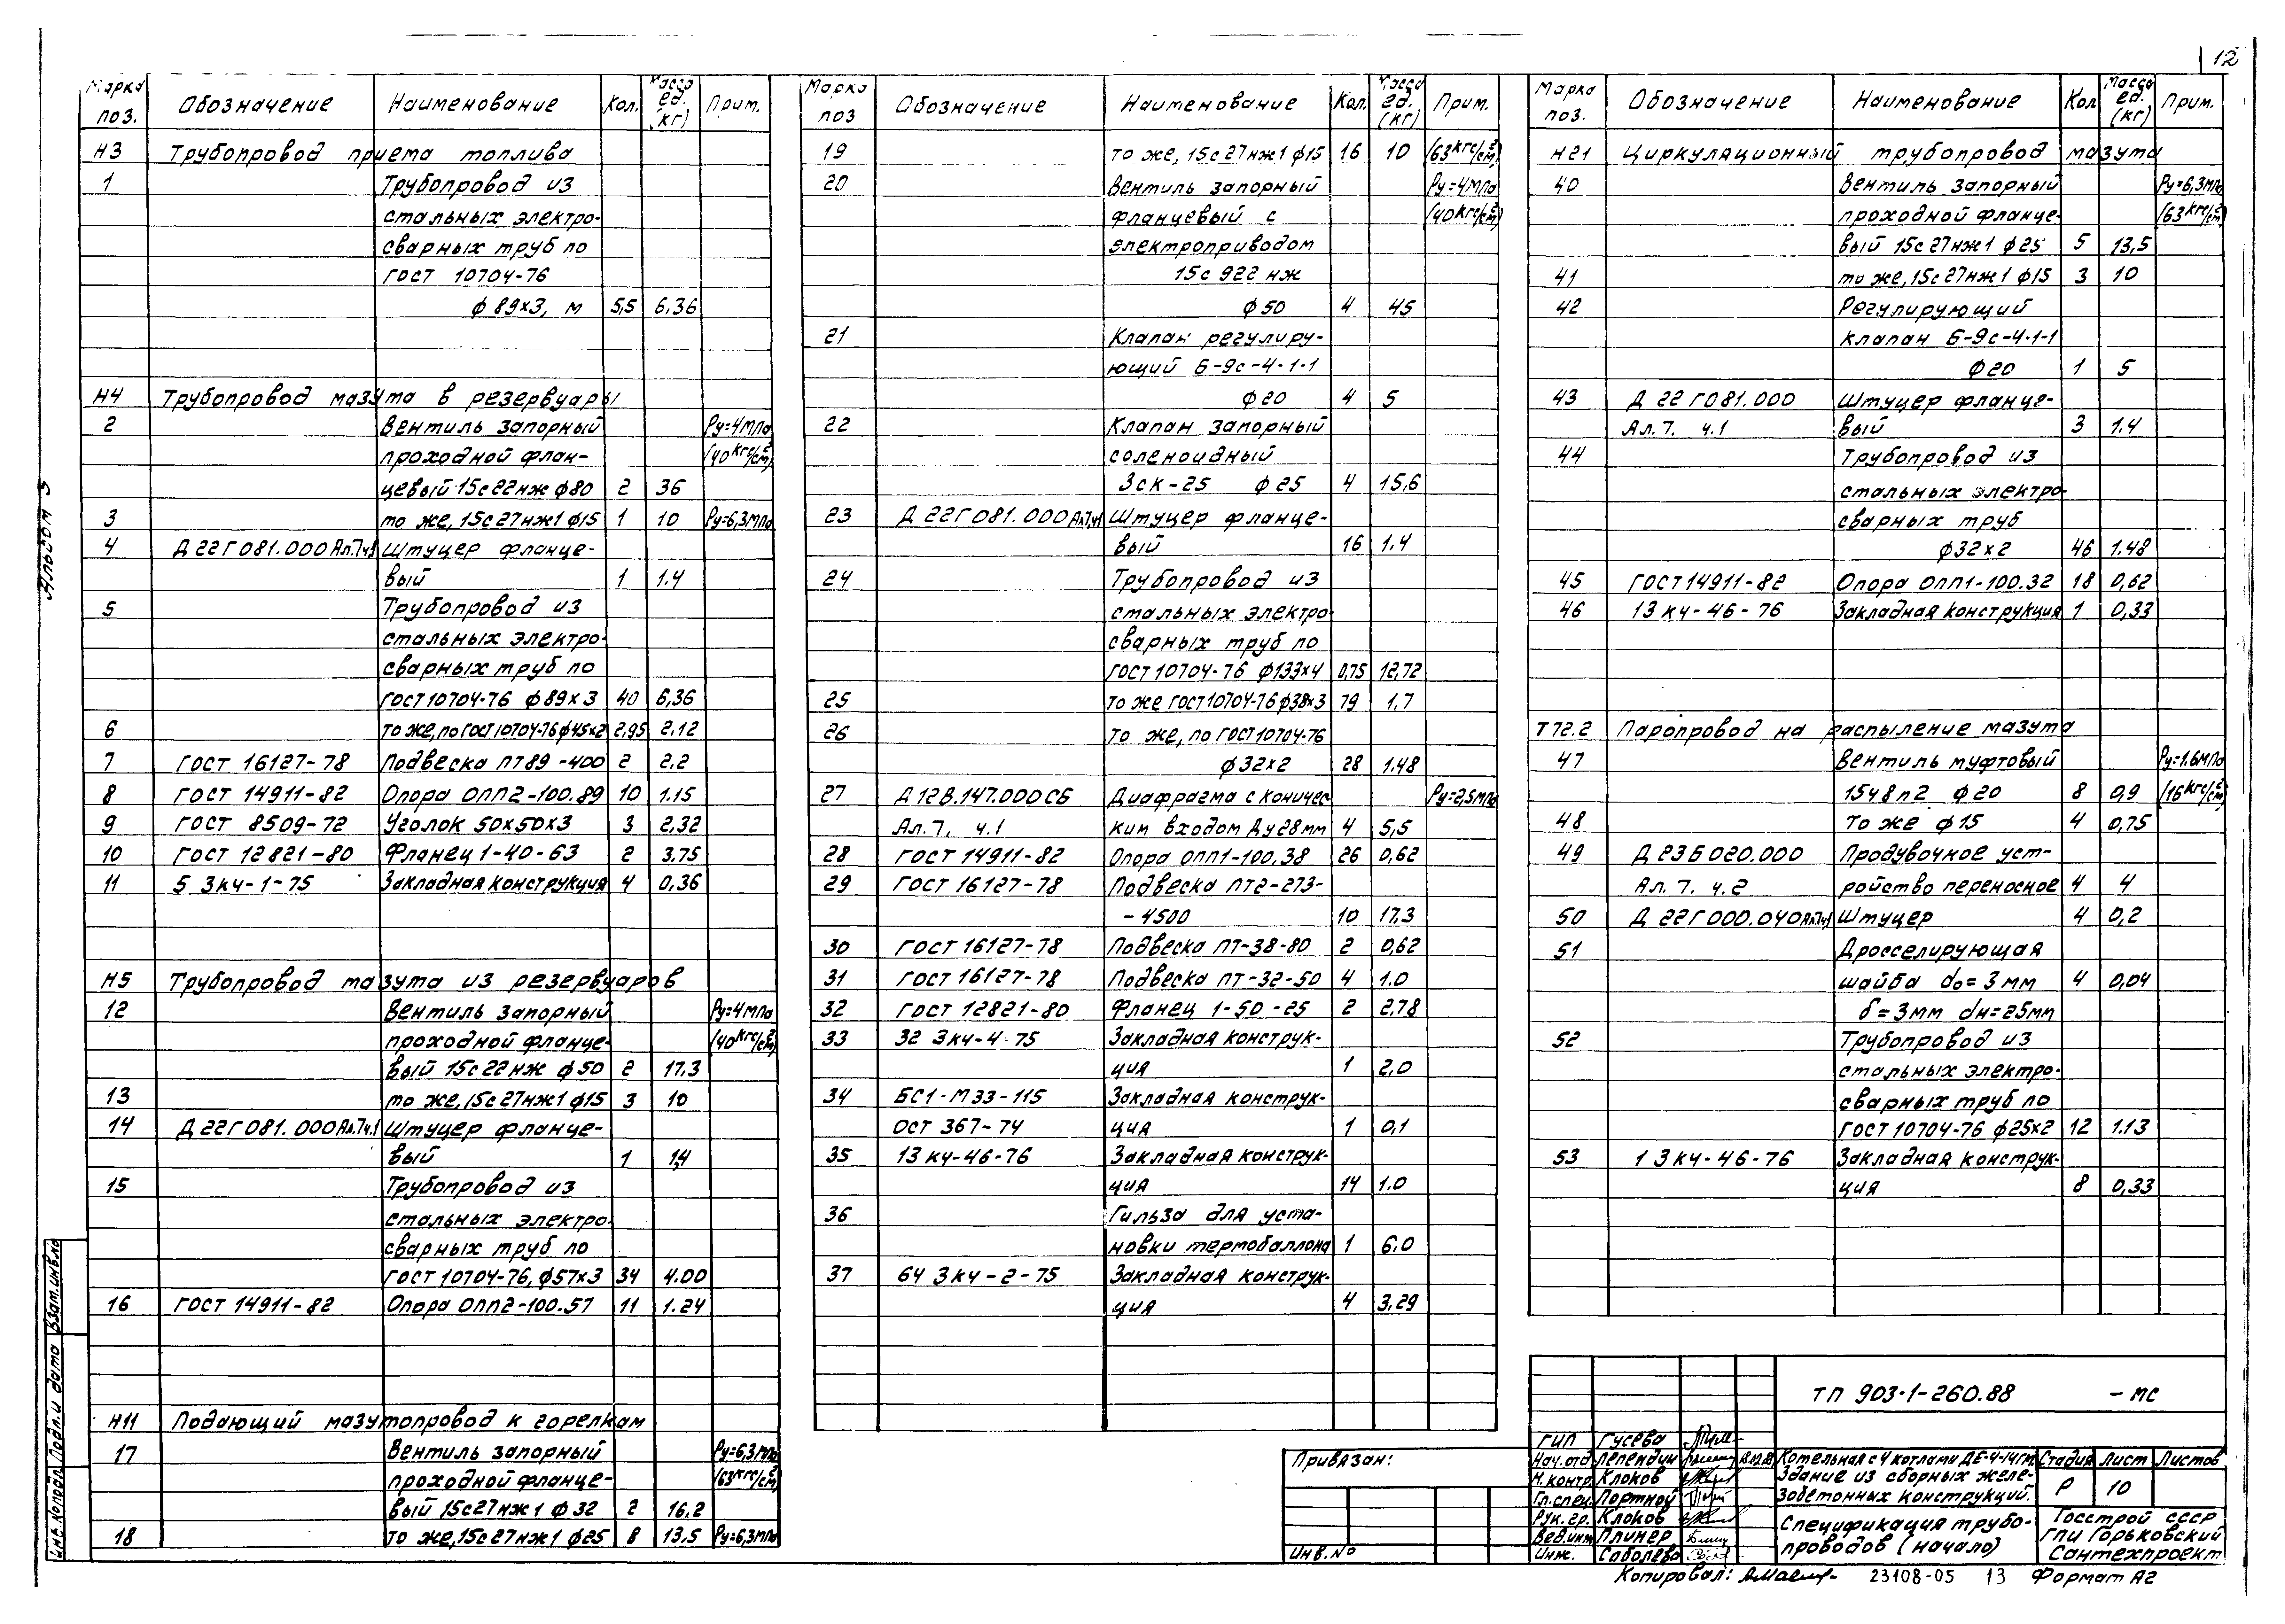 12
Альбом 3
Марка поз. Обозначение Наименование Кол. Масса ед. (кг) Прим.
Н3 Трубопровод приема топлива
1 Трубопровод из
стальных электро-
сварных труб по
ГОСТ 10704-76
ф 89х3, м 5,5 6,36
Н4 Трубопровод мазута в резервуары
2 Вентиль запорный Ру=4МПа
проходной флан- (40кгс/см²)
цевый 15с22нж ф80 2 36
3 то же, 15с27нж1 ф15 1 10 Ру=6,3МПа
4 Д 22Г 081.000 Ал.7ч.1 Штуцер фланце-
вый 1 1.4
5 Трубопровод из
стальных электро-
сварных труб по
ГОСТ 10704-76 ф 89х3 40 6,36
6 то же, по ГОСТ 10704-76 ф45х2 2,95 2,12
7 ГОСТ 16127-78 Подвеска ПТ89-400 2 2.2
8 ГОСТ 14911-82 Опора ОПП2-100.89 10 1.15
9 ГОСТ 8509-72 Уголок 50х50х3 3 2,32
10 ГОСТ 12821-80 Фланец 1-40-63 2 3.75
11 5 Зкч-1-75 Закладная конструкция 4 0,36
Н5 Трубопровод мазута из резервуаров
12 Вентиль запорный Ру=4МПа
проходной фланце- (40кгс/см²)
вый 15с22нж ф50 2 17.3
13 то же, 15с27нж1 ф15 3 10
14 Д 22Г 081.000 Ал.7ч.1 Штуцер фланце-
вый 1 1,4
15 Трубопровод из
стальных электро-
сварных труб по
ГОСТ 10704-76, ф57х3 34 4.00
16 ГОСТ 14911-82 Опора ОПП2-100.57 11 1.24
Н11 Подающий мазутопровод к горелкам
17 Вентиль запорный Ру=6,3МПа
проходной фланце- (63кгс/см²)
вый 15с27нж1 ф 32 2 16,2
18 то же, 15с27нж1 ф25 8 13,5 Ру=6,3МПа
Марка поз Обозначение Наименование Кол. Масса ед. (кг) Прим.
19 то же, 15с27нж1 ф15 16 10 (63кгс/см²)
20 Вентиль запорный Ру=4МПа
фланцевый с (40кгс/см²)
электроприводом
15с 922 нж
ф 50 4 45
21 Клапан регулиру-
ющий Б-9с-4-1-1
ф20 4 5
22 Клапан запорный
соленоидный
Зск-25 ф 25 4 15,6
23 Д 22Г 081.000 Ал.7,ч1 Штуцер фланце-
вый 16 1.4
24 Трубопровод из
стальных электро
сварных труб по
ГОСТ 10704-76 ф133х4 0,75 12,72
25 то же ГОСТ 10704-76 ф38х3 79 1.7
26 то же, по ГОСТ 10704-76
ф32х2 28 1.48
27 Д 12В.147.000 СБ Диафрагма с коничес Ру=2,5МПа
Ал.7, ч.1 ким входом Ду28мм 4 5,5
28 ГОСТ 14911-82 Опора ОПП1-100.38 26 0,62
29 ГОСТ 16127-78 Подвеска ПТ2-273-
-4500 10 17.3
30 ГОСТ 16127-78 Подвеска ПТ-38-80 2 0,62
31 ГОСТ 16127-78 Подвеска ПТ-32-50 4 1.0
32 ГОСТ 12821-80 Фланец 1-50-25 2 2,78
33 32 Зкч-4-75 Закладная конструк-
ция 1 2,0
34 БС1-М33-115 Закладная конструк-
ОСТ 367-74 ция 1 0,1
35 13 кч-46-76 Закладная конструк-
ция 14 1.0
36 Гильза для уста-
новки термобаллона 1 6.0
37 64 Зкч-2-75 Закладная конструк-
ция 4 3,29
Марка поз. Обозначение Наименование Кол Масса ед. (кг) Прим.
Н21 Циркуляционный трубопровод мазута
40 Вентиль запорный Ру=6,3МПа
проходной фланце- (63кгс/см²)
вый 15с27нж1 ф25 5 13,5
41 то же, 15с27нж1 ф15 3 10
42 Регулирующий
клапан Б-9с-4-1-1
ф20 1 5
43 Д 22 Г081.000 Штуцер фланце-
Ал.7. ч.1 вый 3 1.4
44 Трубопровод из
стальных электро
сварных труб
ф32х2 46 1.48
45 ГОСТ 14911-82 Опора ОПП1-100.32 18 0,62
46 13 кч-46-76 Закладная конструкция 1 0,33
Т72.2 Паропровод на распыление мазута
47 Вентиль муфтовый Ру=1.6МПа
15ч8п2 ф20 8 0,9 (16кгс/см²)
48 То же ф15 4 0,75
49 Д 23Б 020.000 Продувочное уст-
Ал.7. ч.2 ройство переносное 4 4
50 Д 22Г 000.040 Ал.7ч.1 Штуцер 4 0,2
51 Дросселирующая
шайба d₀=3мм 4 0,04
δ=3мм dн=25мм
52 Трубопровод из
стальных электро-
сварных труб по
ГОСТ 10704-76 ф25х2 12 1.13
53 1 Зкч-46-76 Закладная конструк-
ция 8 0,33
ТП 903-1-260.88 -МС
Привязан:
Инв.№
ГИП Гусева
Нач.отд Лепендин
Н.контр. Клоков
Гл.спец. Портной
Рук.гр. Клоков
Вед.инж. Плинер
Инж. Соболева
Котельная с 4 котлами ДЕ-4-14ГМ.
Здание из сборных желе-
зобетонных конструкций.
Стадия Лист Листов
Р 10
Спецификация трубо-
проводов (начало)
Госстрой СССР
ГПИ Горьковский
Сантехпроект
Копировал: 23108-05 13 Формат А2
Инв.№подл. Подп.и дата Взам.инв.№